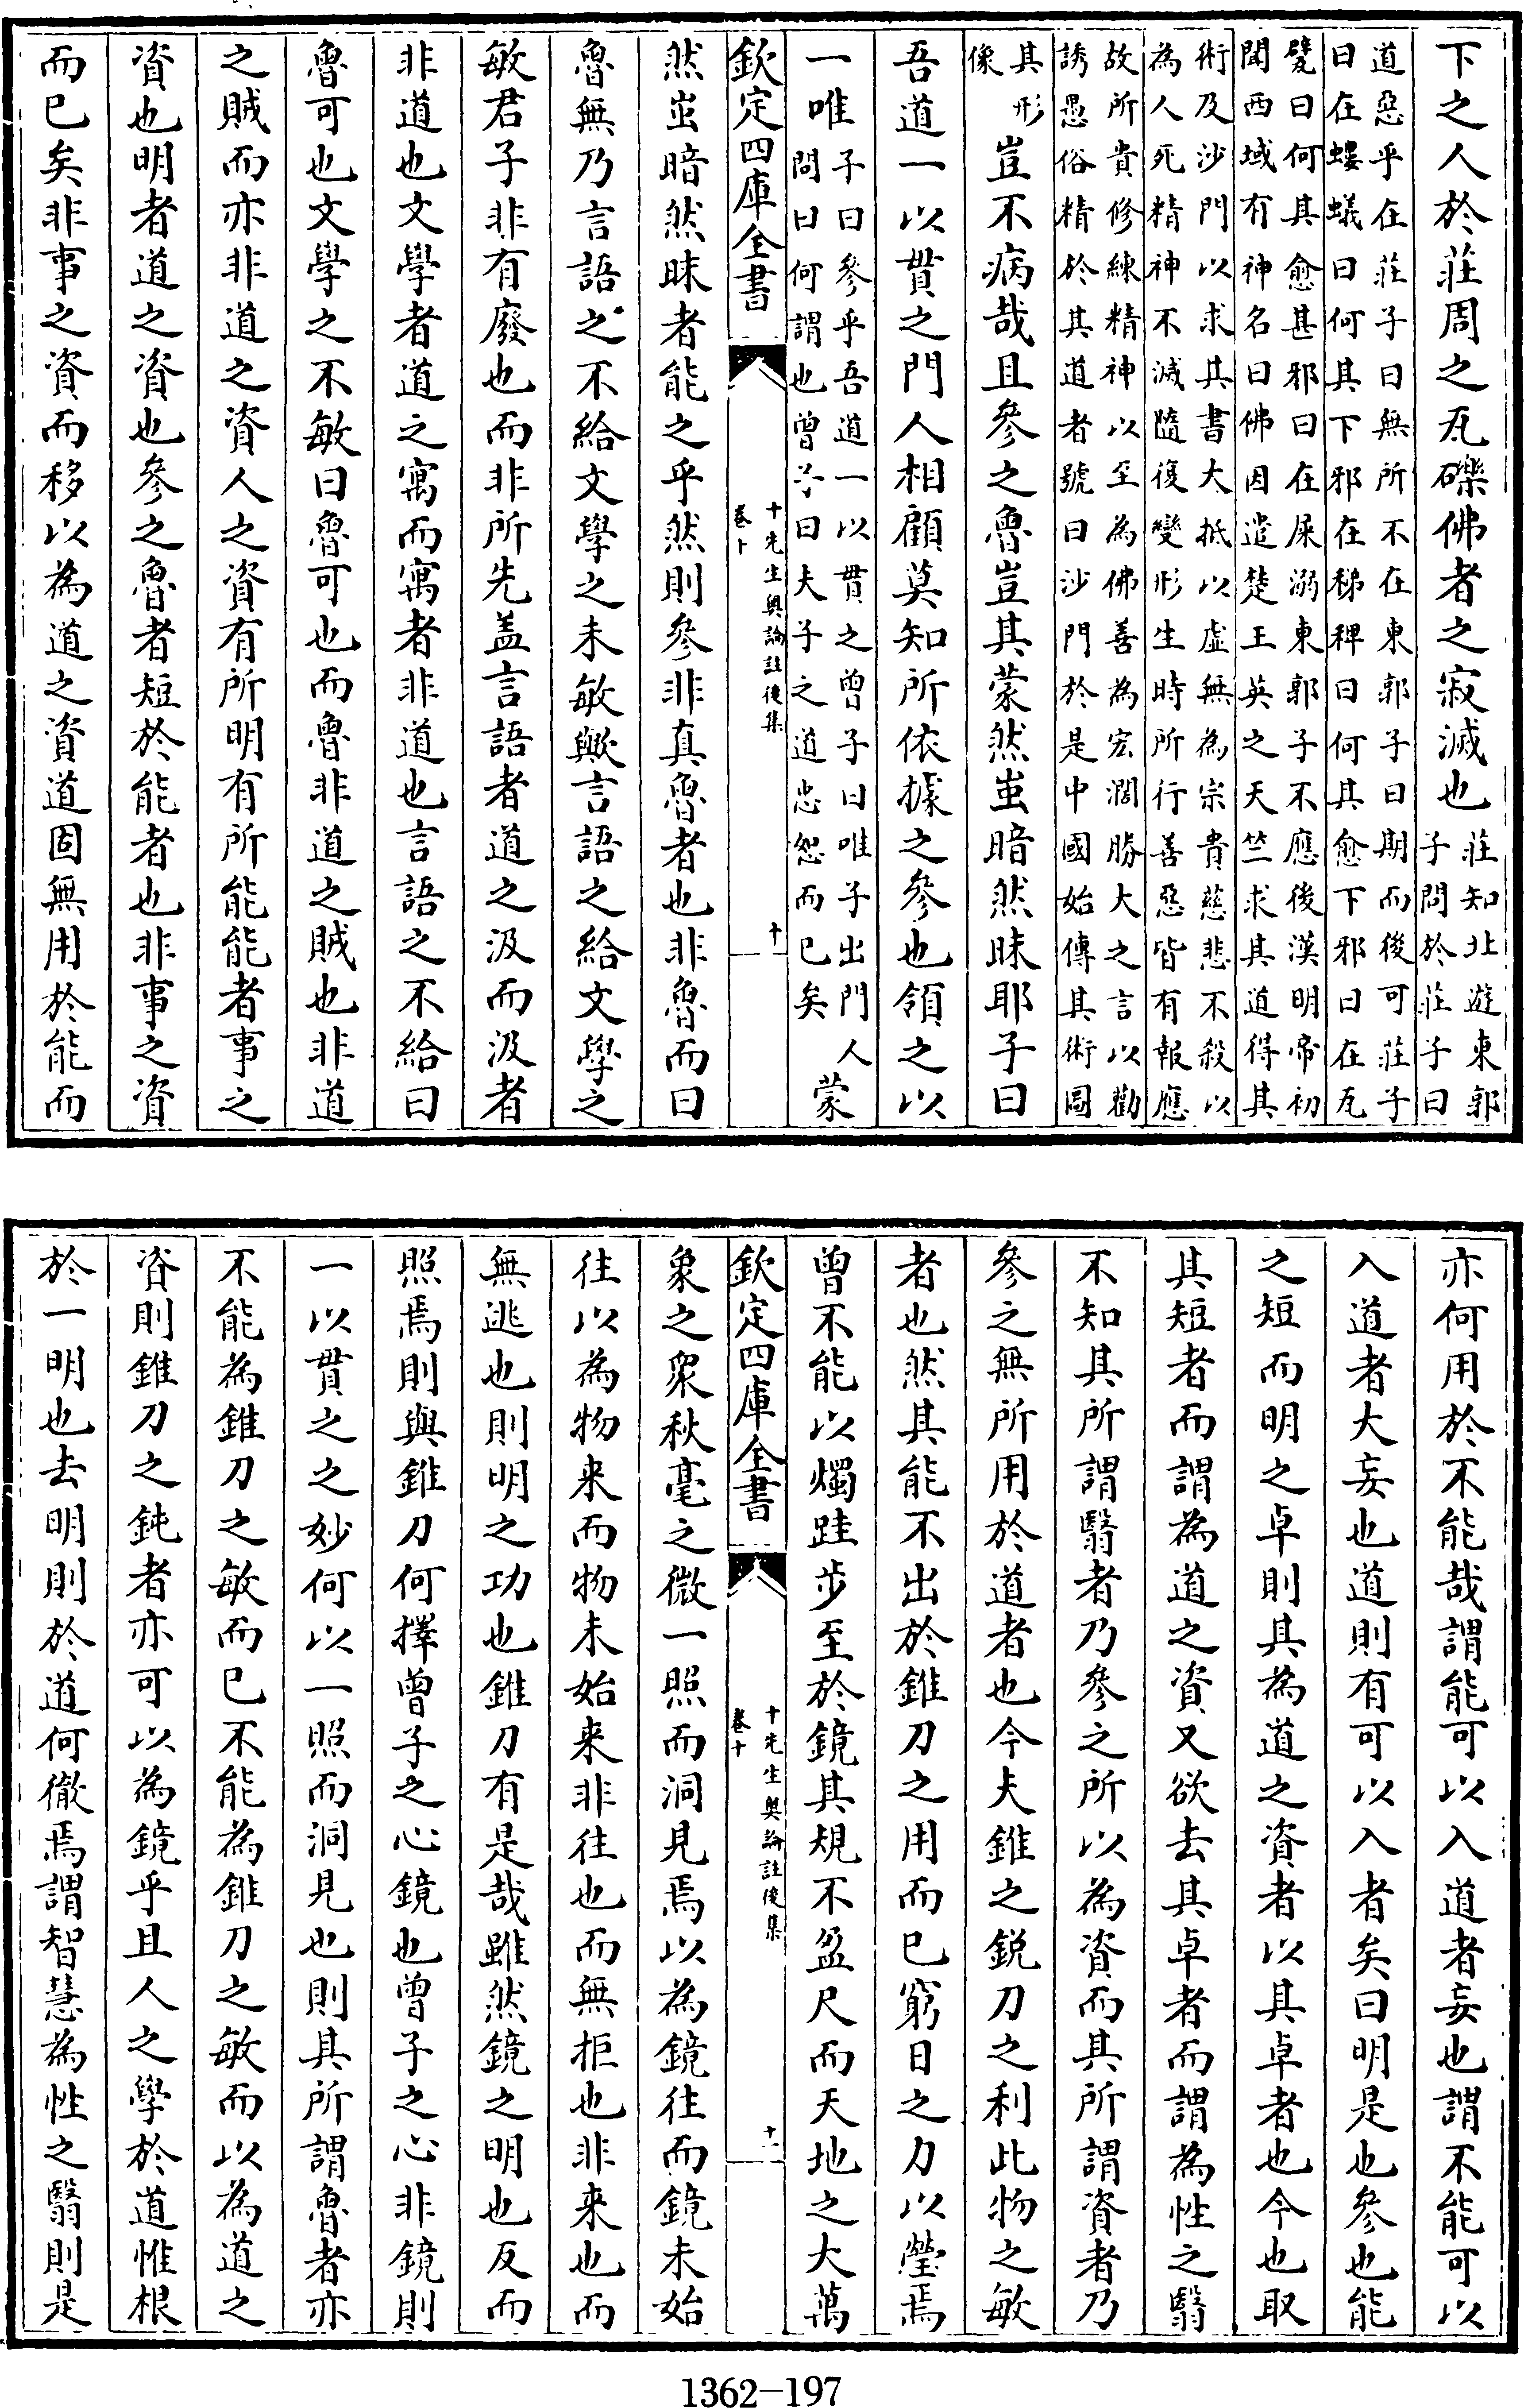 下之人於莊周之瓦礫佛者之寂滅也莊知北遊東郭
子問於莊子曰
道惡乎在莊子曰無所不在東郭子曰期而後可莊子
曰在螻蟻曰何其下邪在稊稗曰何其愈下邪曰在瓦
甓曰何其愈甚邪曰在屎溺東郭子不應後漢明帝初
聞西域有神名曰佛因遣楚王英之天竺求其道得其
術及沙門以求其書大抵以虛無為宗貴慈悲不殺以
為人死精神不滅隨復變形生時所行善惡皆有報應
故所貴修練精神以至為佛善為宏濶勝大之言以勸
誘愚俗精於其道者號曰沙門於是中國始傳其術圖
其形
像
豈不病哉且參之魯豈其蒙然蚩暗然昧耶子曰
吾道一以貫之門人相顧莫知所依據之參也領之以
一唯
子曰參乎吾道一以貫之曾子曰唯子出門人
問曰何謂也曾子曰夫子之道忠恕而已矣
蒙
欽定四庫全書
十先生奧論註後集
卷十
十
然蚩暗然昧者能之乎然則參非真魯者也非魯而曰
魯無乃言語之不給文學之未敏歟言語之給文學之
敏君子非有廢也而非所先盖言語者道之汲而汲者
非道也文學者道之寓而寓者非道也言語之不給曰
魯可也文學之不敏曰魯可也而魯非道之賊也非道
之賊而亦非道之資人之資有所明有所能能者事之
資也明者道之資也參之魯者短於能者也非事之資
而已矣非事之資而移以為道之資道固無用於能而
亦何用於不能哉謂能可以入道者妄也謂不能可以
入道者大妄也道則有可以入者矣曰明是也參也能
之短而明之卓則其為道之資者以其卓者也今也取
其短者而謂為道之資又欲去其卓者而謂為性之翳
不知其所謂翳者乃參之所以為資而其所謂資者乃
參之無所用於道者也今夫錐之銳刀之利此物之敏
者也然其能不出於錐刀之用而已窮日之力以瑩焉
曾不能以燭跬步至於鏡其規不盈尺而天地之大萬
欽定四庫全書
十先生奧論註後集
卷十
十一
象之衆秋毫之微一照而洞見焉以為鏡往而鏡未始
往以為物来而物未始来非往也而無拒也非来也而
無逃也則明之功也錐刀有是哉雖然鏡之明也反而
照焉則與錐刀何擇曾子之心鏡也曾子之心非鏡則
一以貫之之妙何以一照而洞見也則其所謂魯者亦
不能為錐刀之敏而已不能為錐刀之敏而以為道之
資則錐刀之鈍者亦可以為鏡乎且人之學於道惟根
於一明也去明則於道何徹焉謂智慧為性之翳則是
1362-197